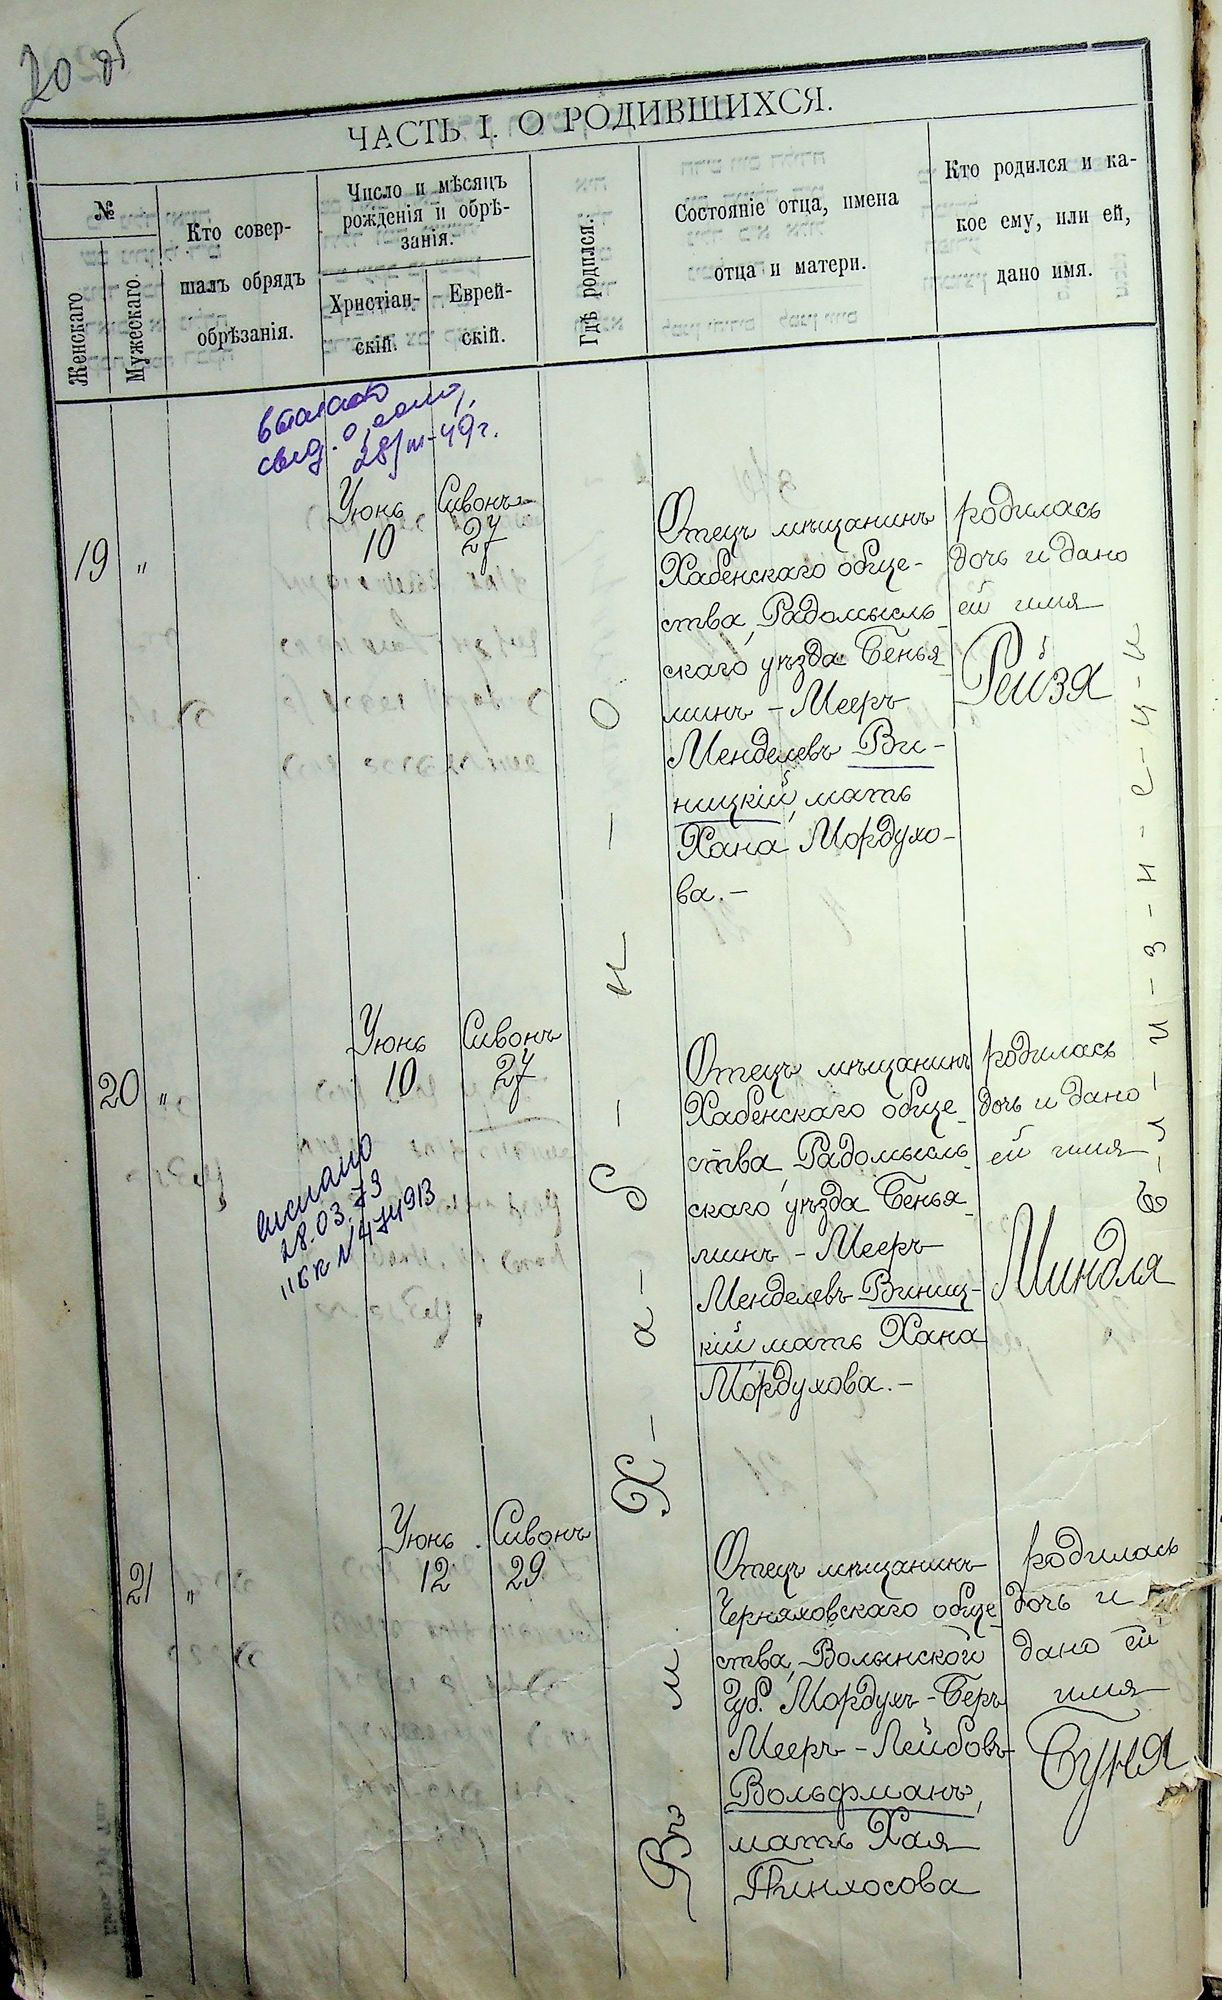 20 об
ЧАСТЬ I. О РОДИВШИХСЯ.
№
Женскаго
Мужескаго.
Кто совер-
шалъ обрядъ
обрѣзанія.
Число и мѣсяцъ
рожденія и обрѣ-
занія.
Христіан-
скій.
Еврей-
скій.
Гдѣ родился.
Состояніе отца, имена
отца и матери.
Кто родился и ка-
кое ему, или ей,
дано имя.
28/III-49г.
19 "
Июнь
10
Сивонъ
27
Отецъ мѣщанинъ
Хабенскаго обще-
ства, Радомысль
скаго уѣзда Бенья
минъ - Мееръ
Менделевъ Ви-
ницкій, мать
Хана Мордухо-
ва.-
родилась
дочь и дано
ей имя
Рейзя
20 "
Июнь
10
Сивонъ
27
28.03.73
Отецъ мѣщанинъ
Хабенскаго обще
ства, Радомысль
скаго уѣзда Бенья
минъ - Мееръ
Менделевъ Виниц-
кій, мать Хана
Мордухова.-
родилась
дочь и дано
ей имя
Миндля
21 "
Июнь
12
Сивонъ
29
Отецъ мѣщанинъ
Черняховскаго обще
ства, Волынской
Губ. Мордухъ-Беръ
Мееръ-Лейбовъ
Вольфманъ,
мать Хая
Пинхосова
родилась
дочь и
дано ей
имя
Буня
Въ м. Х-а-б-н-о